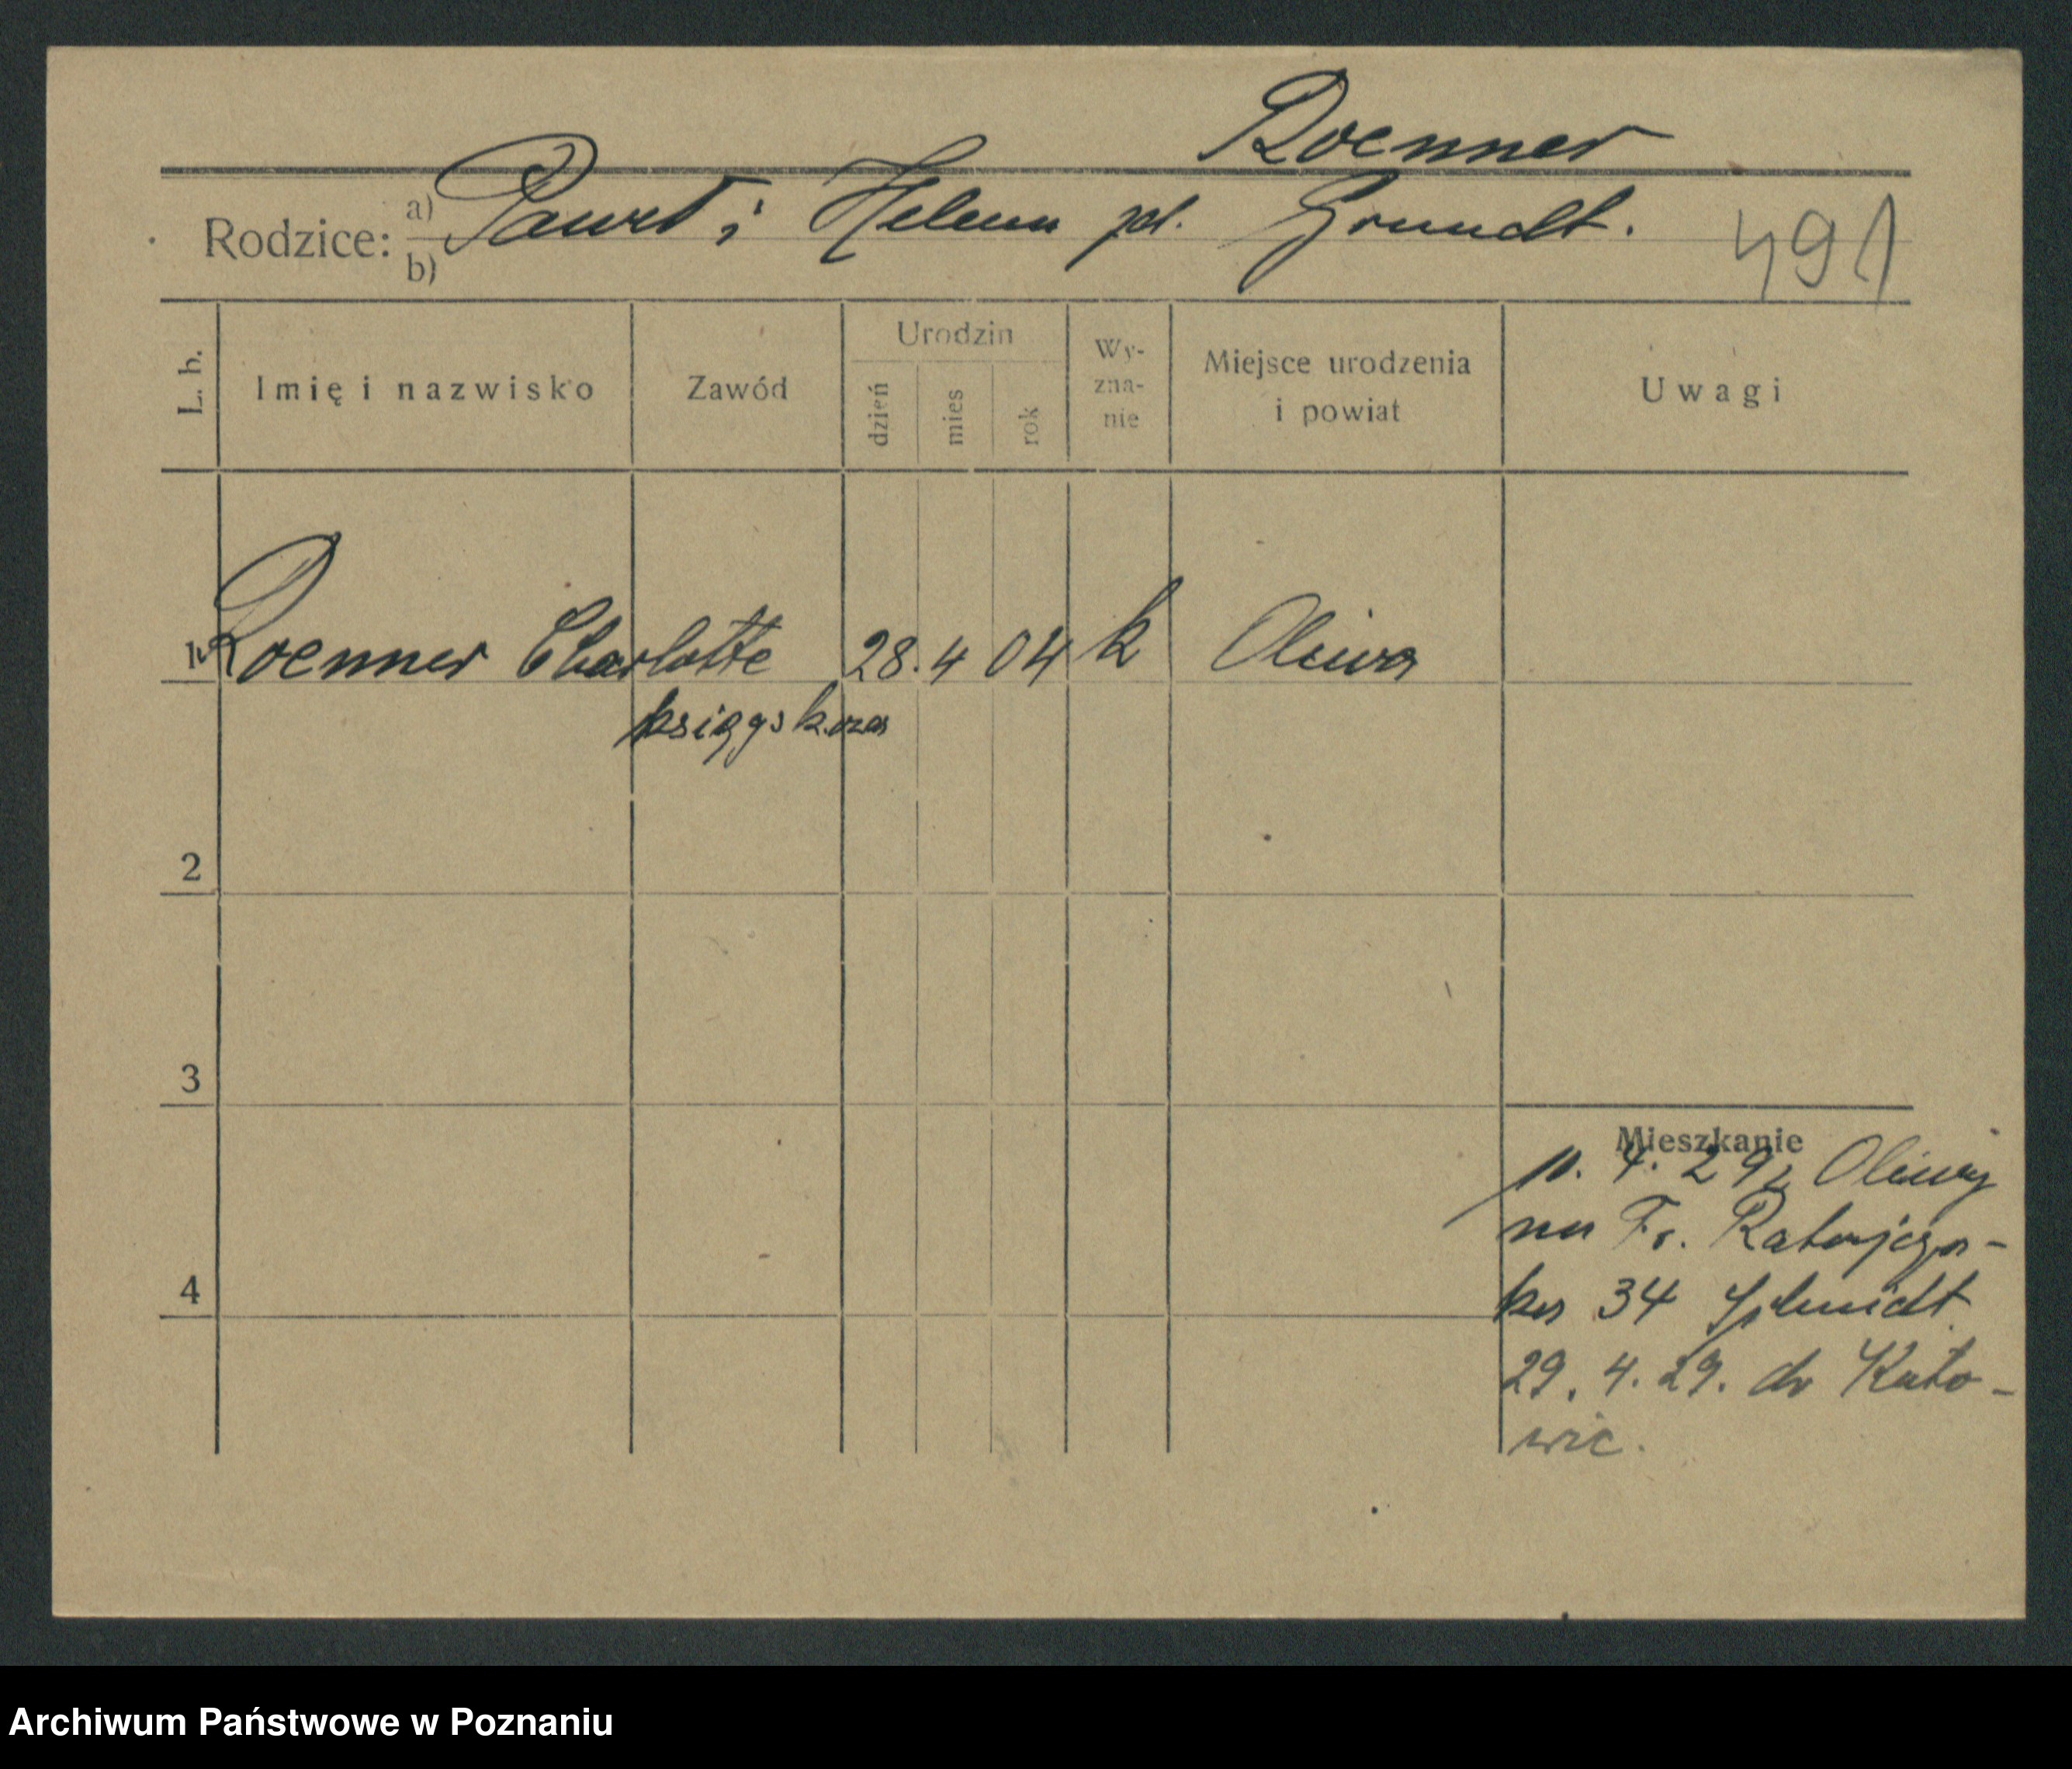 Roenner
Rodzice: a) Paweł i Helena zd. Grundt.
b)
491
L. b. Imię i nazwisko Zawód Urodzin dzień mies rok Wy-zna-nie Miejsce urodzenia i powiat Uwagi
1 Roenner Charlotte 28. 4 04 k Oliwa
2
3
Mieszkanie
10. 4. 29 z Oliwy
na Fr. Ratajcza-
ka 34 Schmidt
4
29. 4. 29. do Kato-
wic.
Archiwum Państwowe w Poznaniu